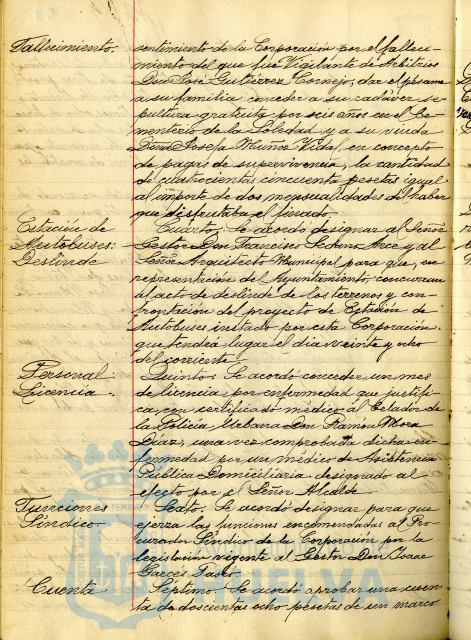 Fallecimiento.
sentimiento de la Corporación por el falleci-
miento del que fué Vigilante de Arbitrios
Don José Gutiérrez Cornejo, dar el pésame
a su familia, conceder a su cadáver se-
pultura gratuita por seis años en el Ce-
menterio de la Soledad y a su viuda
Doña Josefa Muñoz Vidal, en concepto
de pagas de supervivencia, la cantidad
de cuatrocientas cincuenta pesetas igual
al importe de dos mensualidades del haber
que disfrutaba el finado.
Estación de
Autobuses:
Deslinde
Cuarto. Se acordó designar al Señor
Gestor Don Francisco Sedano Arce y al
Señor Arquitecto Municipal para que, en
representación del Ayuntamiento, concurran
al acto de deslinde de los terrenos y con-
frontación del proyecto de Estación de
Autobuses instado por esta Corporación,
que tendrá lugar el dia veinte y ocho
del corriente.
Personal
Licencia.
Quinto. Se acordó conceder un mes
de licencia por enfermedad que justifi-
ca con certificado médico al Celador de
la Policía Urbana Don Ramón Mora
Díaz, una vez comprobada dicha en-
fermedad por un médico de Asistencia
Pública Domiciliaria designado al
efecto por el Señor Alcalde.
Funciones
Síndico.
Sexto. Se acordó designar para que
ejerza las funciones encomendadas al Pro-
curador Síndico de la Corporación por la
legislación vigente al Gestor Don Isaac
Garcés
Cuenta
Séptimo. Se acordó aprobar una cuen-
ta de doscientas ocho pesetas de un marco
HUELVA